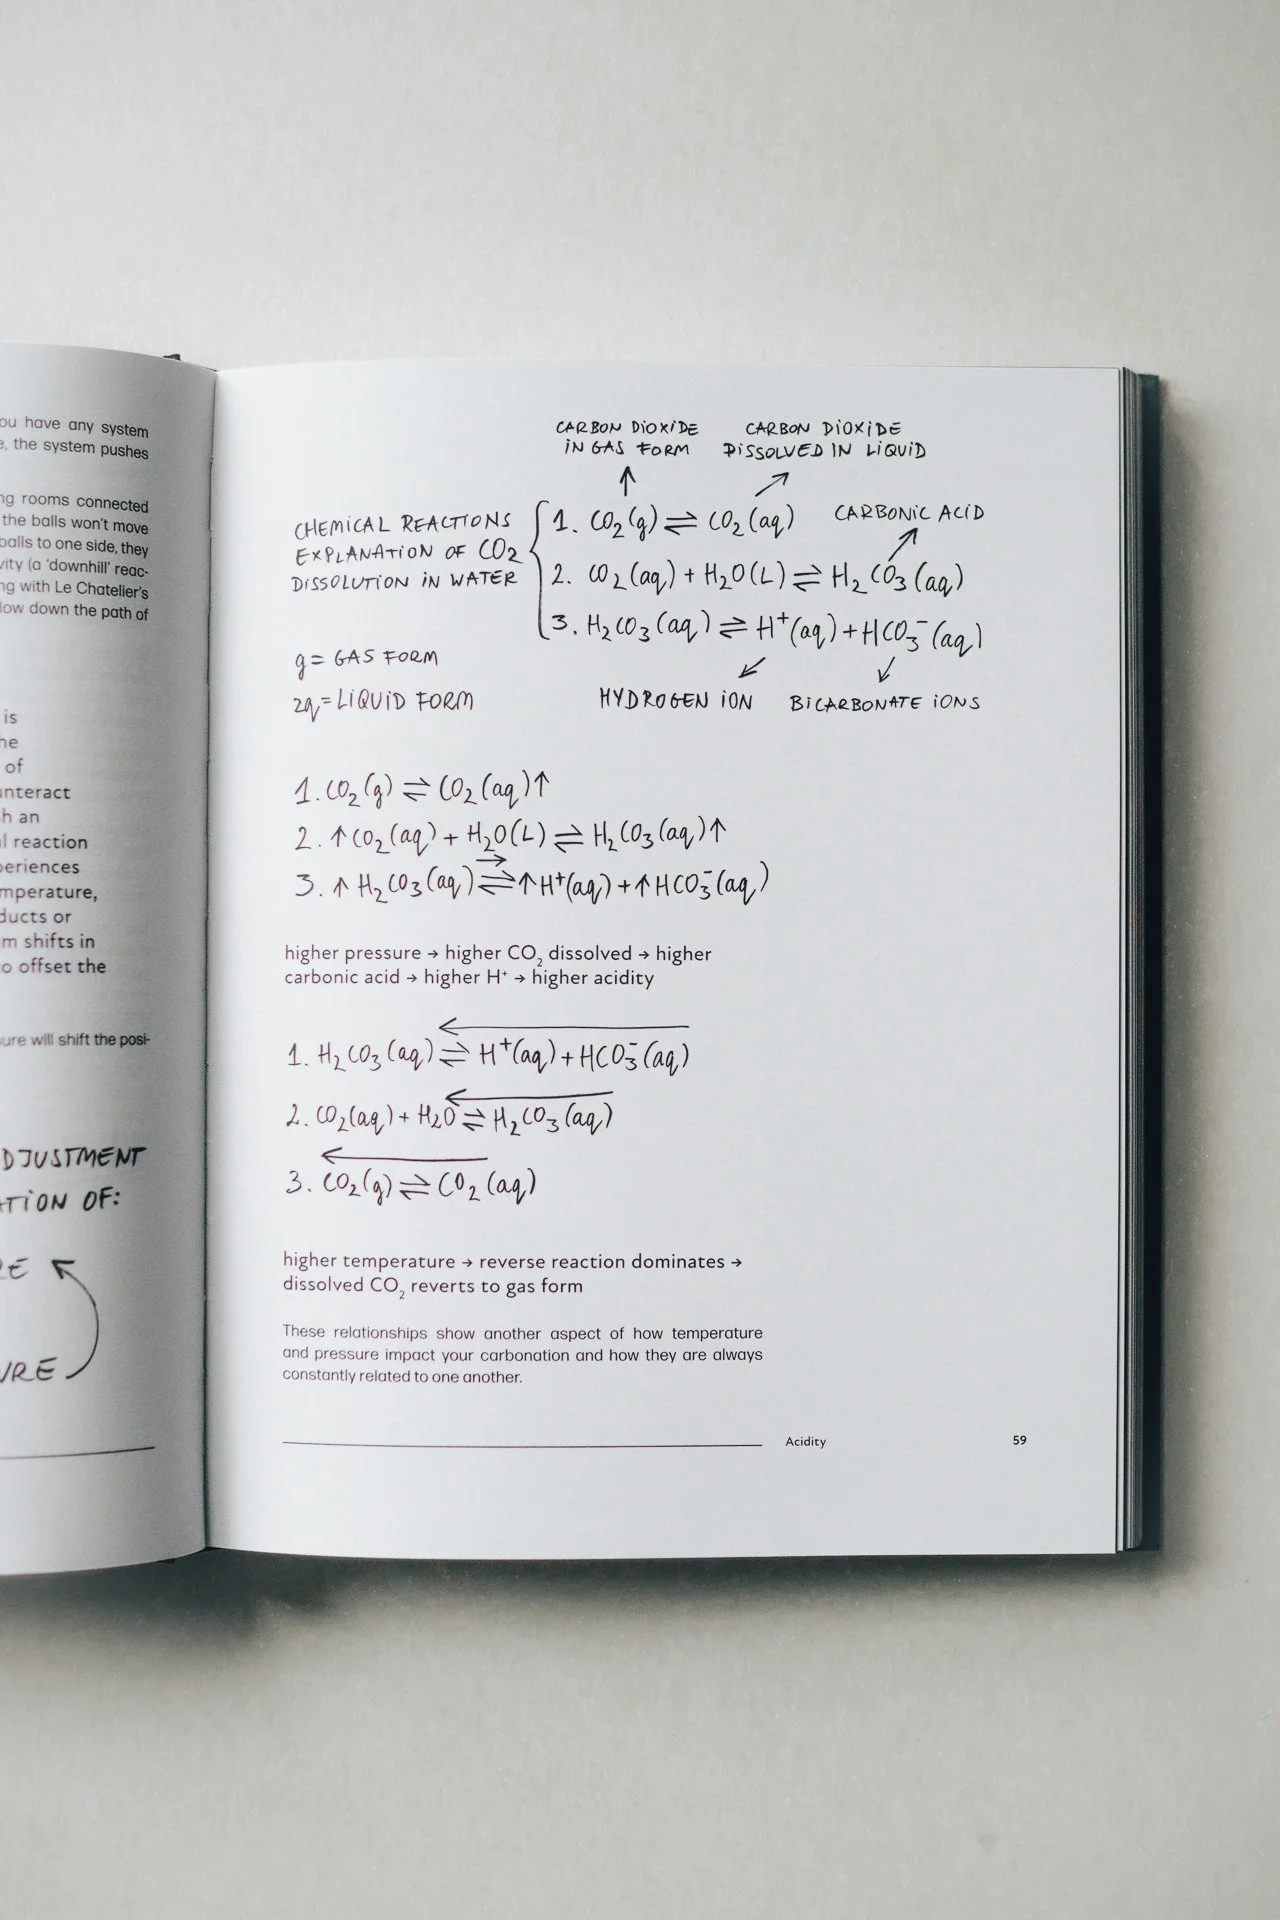 ou have any system
, the system pushes
ng rooms connected
the balls won't move
balls to one side, they
vity (a 'downhill' reac-
ng with Le Chatelier's
low down the path of
is
he
of
unteract
h an
l reaction
periences
mperature,
ducts or
m shifts in
o offset the
ure will shift the posi-
DJUSTMENT
ATION OF:
RE
URE
CARBON DIOXIDE
IN GAS FORM
CARBON DIOXIDE
DISSOLVED IN LIQUID
CHEMICAL REACTIONS
EXPLANATION OF CO₂
DISSOLUTION IN WATER
1. CO₂(g) ⇌ CO₂(aq)
CARBONIC ACID
2. CO₂(aq) + H₂O(L) ⇌ H₂CO₃(aq)
3. H₂CO₃(aq) ⇌ H⁺(aq) + HCO₃⁻(aq)
g = GAS FORM
aq = LIQUID FORM
HYDROGEN ION
BICARBONATE IONS
1. CO₂(g) ⇌ CO₂(aq)↑
2. ↑CO₂(aq) + H₂O(L) ⇌ H₂CO₃(aq)↑
3. ↑H₂CO₃(aq) ⇌ ↑H⁺(aq) + ↑HCO₃⁻(aq)
higher pressure → higher CO₂ dissolved → higher
carbonic acid → higher H⁺ → higher acidity
1. H₂CO₃(aq) ⇌ H⁺(aq) + HCO₃⁻(aq)
2. CO₂(aq) + H₂O ⇌ H₂CO₃(aq)
3. CO₂(g) ⇌ CO₂(aq)
higher temperature → reverse reaction dominates →
dissolved CO₂ reverts to gas form
These relationships show another aspect of how temperature
and pressure impact your carbonation and how they are always
constantly related to one another.
Acidity
59